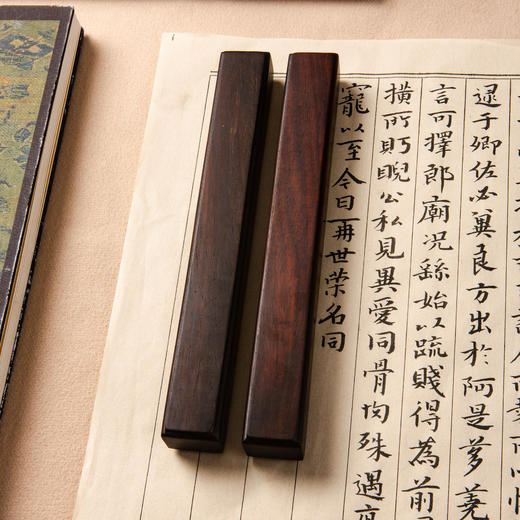 逮于卿佐必冀良方出於阿是芻蕘
言可擇郎廟況繇始以疏賤得為前
橫所盱睨公私見異愛同骨肉殊遇
寵以至今日再世榮名同